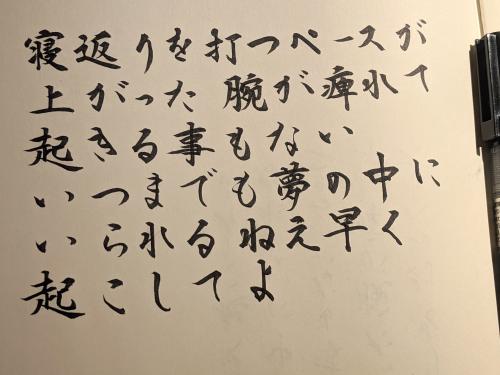 寝返りを打つペースが
上がった 腕が痺れて
起きる事もない
いつまでも夢の中に
いられるねえ早く
起こしてよ